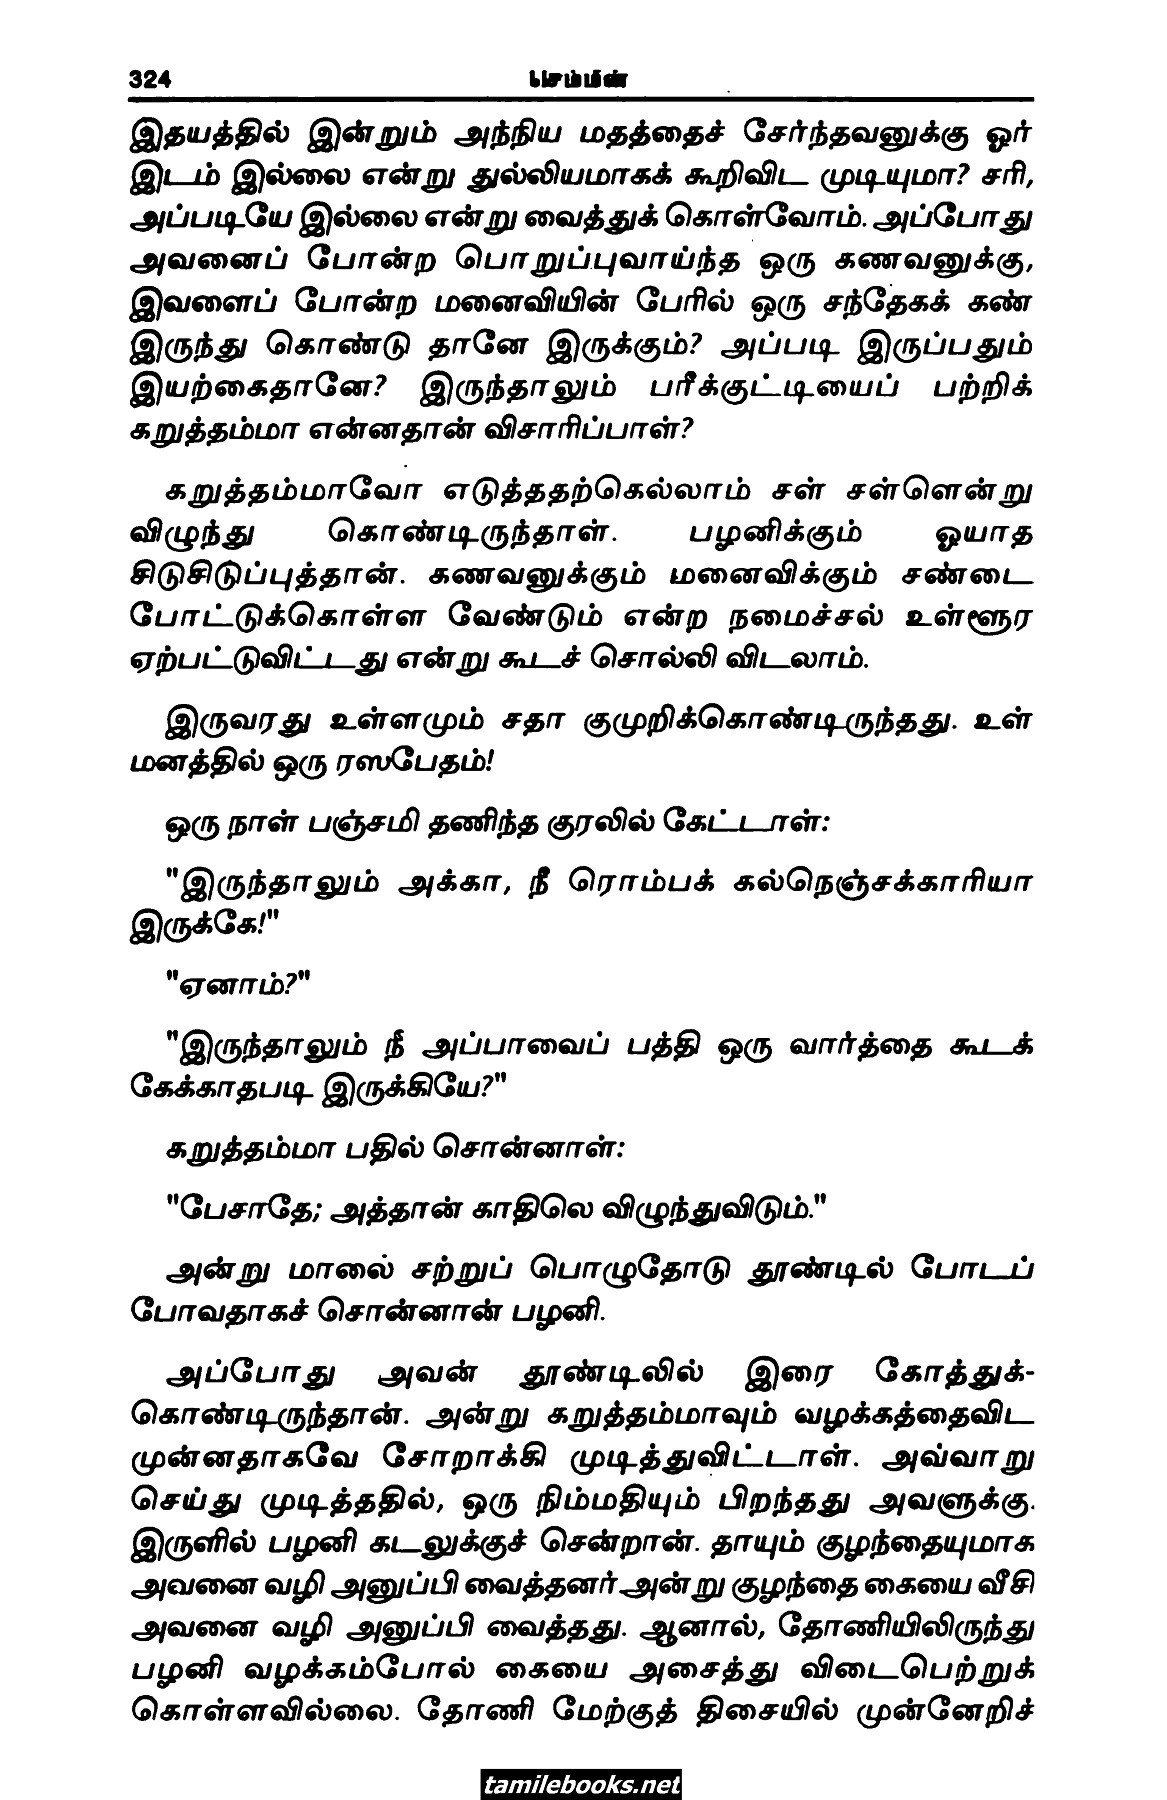 324
செம்மீன்
இதயத்தில் இன்றும் அந்நிய மதத்தைச் சேர்ந்தவனுக்கு ஓர்
இடம் இல்லை என்று துல்லியமாகக் கூறிவிட முடியுமா? சரி,
அப்படியே இல்லை என்று வைத்துக் கொள்வோம். அப்போது
அவனைப் போன்ற பொறுப்புவாய்ந்த ஒரு கணவனுக்கு,
இவளைப் போன்ற மனைவியின் பேரில் ஒரு சந்தேகக் கண்
இருந்து கொண்டு தானே இருக்கும்? அப்படி இருப்பதும்
இயற்கைதானே? இருந்தாலும் பரீக்குட்டியைப் பற்றிக்
கறுத்தம்மா என்னதான் விசாரிப்பாள்?
கறுத்தம்மாவோ எடுத்ததற்கெல்லாம் சள் சள்ளென்று
விழுந்து கொண்டிருந்தாள். பழனிக்கும் ஓயாத
சிடுசிடுப்புத்தான். கணவனுக்கும் மனைவிக்கும் சண்டை
போட்டுக்கொள்ள வேண்டும் என்ற நமைச்சல் உள்ளூர
ஏற்பட்டுவிட்டது என்று கூடச் சொல்லி விடலாம்.
இருவரது உள்ளமும் சதா குமுறிக்கொண்டிருந்தது. உள்
மனத்தில் ஒரு ரஸபேதம்!
ஒரு நாள் பஞ்சமி தணிந்த குரலில் கேட்டாள்:
"இருந்தாலும் அக்கா, நீ ரொம்பக் கல்நெஞ்சக்காரியா
இருக்கே!"
"ஏனாம்?"
"இருந்தாலும் நீ அப்பாவைப் பத்தி ஒரு வார்த்தை கூடக்
கேக்காதபடி இருக்கியே?"
கறுத்தம்மா பதில் சொன்னாள்:
"பேசாதே; அத்தான் காதிலெ விழுந்துவிடும்."
அன்று மாலை சற்றுப் பொழுதோடு தூண்டில் போடப்
போவதாகச் சொன்னான் பழனி.
அப்போது அவன் தூண்டிலில் இரை கோத்துக்-
கொண்டிருந்தான். அன்று கறுத்தம்மாவும் வழக்கத்தைவிட
முன்னதாகவே சோறாக்கி முடித்துவிட்டாள். அவ்வாறு
செய்து முடித்ததில், ஒரு நிம்மதியும் பிறந்தது அவளுக்கு.
இருளில் பழனி கடலுக்குச் சென்றான். தாயும் குழந்தையுமாக
அவனை வழி அனுப்பி வைத்தனர் அன்று குழந்தை கையை வீசி
அவனை வழி அனுப்பி வைத்தது. ஆனால், தோணியிலிருந்து
பழனி வழக்கம்போல் கையை அசைத்து விடைபெற்றுக்
கொள்ளவில்லை. தோணி மேற்குத் திசையில் முன்னேறிச்
tamilebooks.net